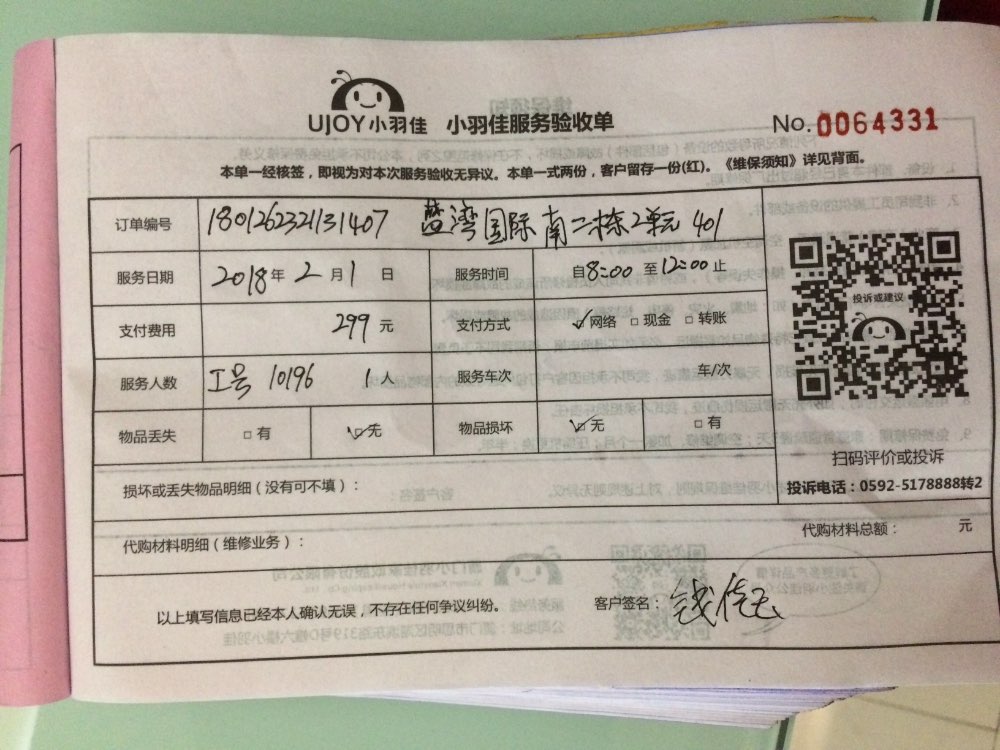 UJOY小羽佳 小羽佳服务验收单 No.0064331
本单一经核签，即视为对本次服务验收无异议。本单一式两份，客户留存一份(红)。《维保须知》详见背面。
订单编号 180126232131407 蓝湾国际南二栋2单元401
服务日期 2018年2月1日 服务时间 自8:00至12:00止
支付费用 299元 支付方式 ☑网络 □现金 □转账
服务人数 工号10196 1人 服务车次 车/次
物品丢失 □有 ☑无 物品损坏 ☑无 □有
投诉或建议
扫码评价或投诉
投诉电话：0592-5178888转2
损坏或丢失物品明细（没有可不填）：
代购材料明细（维修业务）： 代购材料总额： 元
以上填写信息已经本人确认无误，不存在任何争议纠纷。 客户签名：